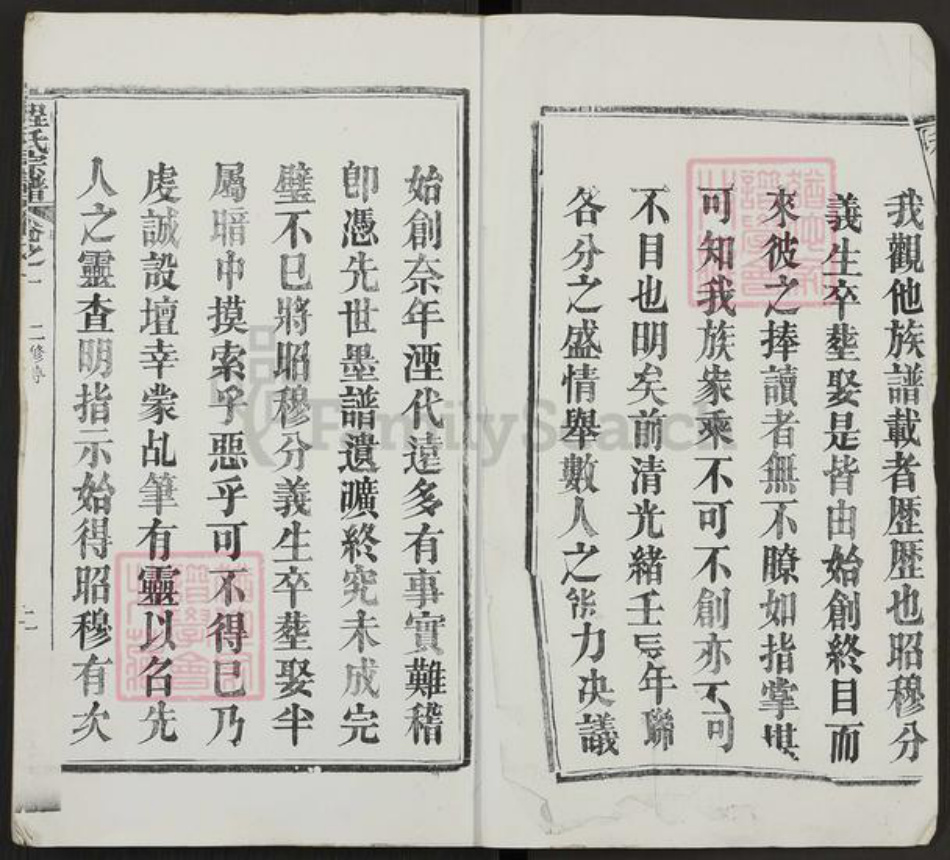 我觀他族譜載者歴歴也昭穆分
義生卒塟娶是皆由始創終目而
來彼之捧讀者無不瞭如指掌堪
可知我族家乘不可不創亦不可
不目也明矣前清光緒壬辰年聯
各分之盛情舉數人之能力决議
始創奈年湮代遠多有事實難稽
卽憑先世墨譜遺曠終究未成完
璧不已將昭穆分義生卒塟娶半
屬暗中摸索乎惡乎可不得已乃
虔誠設壇幸蒙乩筆有靈以名先
人之靈查明指示始得昭穆有次
程氏宗譜 卷之一 二修序 二
FamilySearch